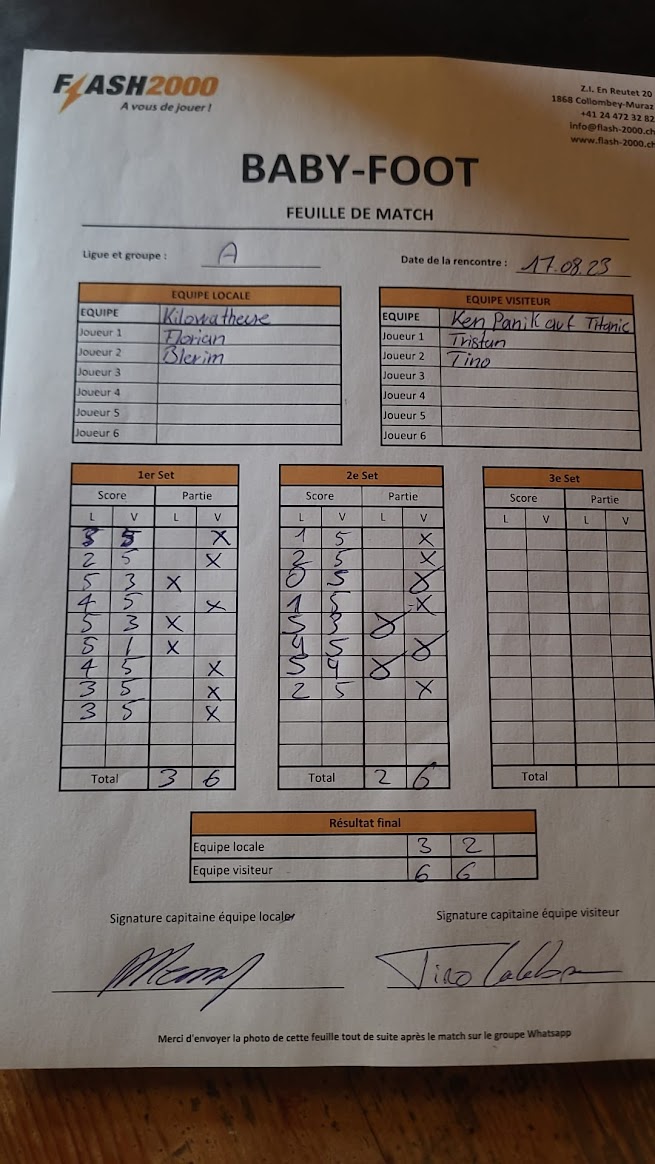 FLASH2000
A vous de jouer !
Z.I. En Reutet 20
1868 Collombey-Muraz
+41 24 472 32 82
info@flash-2000.ch
www.flash-2000.ch
BABY-FOOT
FEUILLE DE MATCH
Ligue et groupe : A
Date de la rencontre : 17.08.23
EQUIPE LOCALE
EQUIPE Kilowatheure
Joueur 1 Florian
Joueur 2 Blerim
Joueur 3
Joueur 4
Joueur 5
Joueur 6
EQUIPE VISITEUR
EQUIPE Ken Panik auf Titanic
Joueur 1 Tristan
Joueur 2 Tino
Joueur 3
Joueur 4
Joueur 5
Joueur 6
1er Set
Score Partie
L V L V
3 5 X
2 5 X
5 3 X
4 5 X
5 3 X
5 1 X
4 5 X
3 5 X
3 5 X
Total 3 6
2e Set
Score Partie
L V L V
1 5 X
2 5 X
0 5 X
1 5 X
5 3 X
4 5 X
5 4 X
2 5 X
Total 2 6
3e Set
Score Partie
L V L V
Total
Résultat final
Equipe locale 3 2
Equipe visiteur 6 6
Signature capitaine équipe locale
Signature capitaine équipe visiteur
Tino
Merci d'envoyer la photo de cette feuille tout de suite après le match sur le groupe Whatsapp